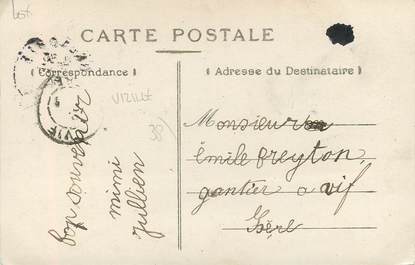 CARTE POSTALE
( Correspondance )
( Adresse du Destinataire )
VIZILLE
38/
bon souvenir
mimi
Jullien
Monsieur
émile Freyton
gantier a vif
Isère
VIF